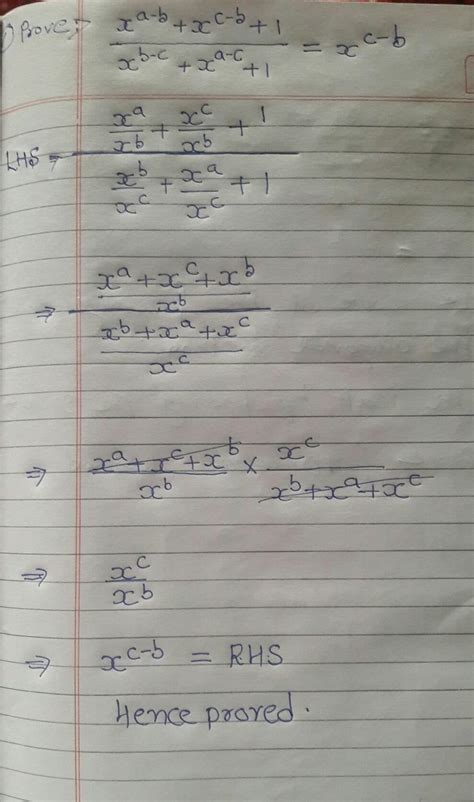 1) Prove:- (x^{a-b} + x^{c-b} + 1) / (x^{b-c} + x^{a-c} + 1) = x^{c-b}
LHS = (x^a/x^b + x^c/x^b + 1) / (x^b/x^c + x^a/x^c + 1)
⇒ ((x^a + x^c + x^b) / x^b) / ((x^b + x^a + x^c) / x^c)
⇒ (x^a + x^c + x^b) / x^b × x^c / (x^b + x^a + x^c)
⇒ x^c / x^b
⇒ x^{c-b} = RHS
Hence proved.